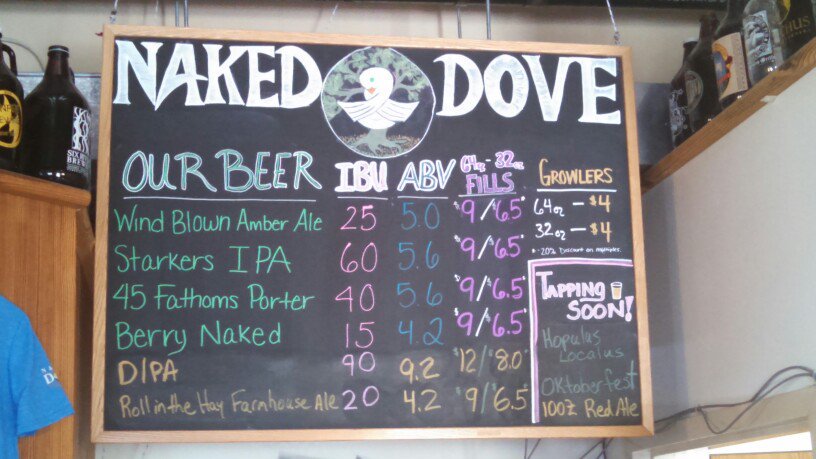 NAKED DOVE
OUR BEER IBU ABV 64oz - 32oz FILLS
Wind Blown Amber Ale 25 5.0 $9/$6.5
Starkers IPA 60 5.6 $9/$6.5
45 Fathoms Porter 40 5.6 $9/$6.5
Berry Naked 15 4.2 $9/$6.5
DIPA 90 9.2 $12/$8.0
Roll in the Hay Farmhouse Ale 20 4.2 $9/$6.5
GROWLERS
64oz - $4
32oz - $4
*-20% Discount on multiples.
TAPPING SOON!
Hopulus
Localus
Oktoberfest
100% Red Ale